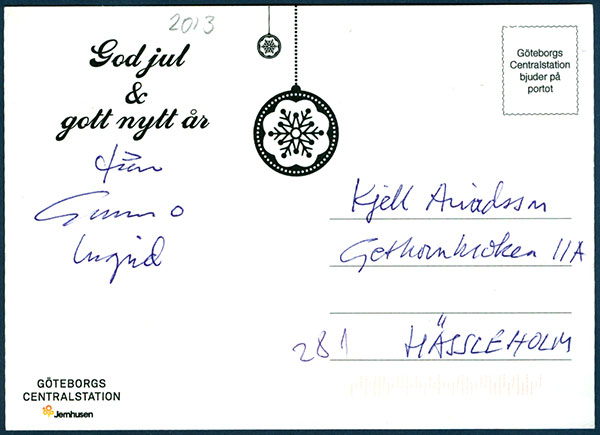 2013
God jul
&
gott nytt år
från
Gunnar o
Ingrid
Göteborgs
Centralstation
bjuder på
portot
Kjell Arvidsson
11A
281 HÄSSLEHOLM
GÖTEBORGS
CENTRALSTATION
Jernhusen